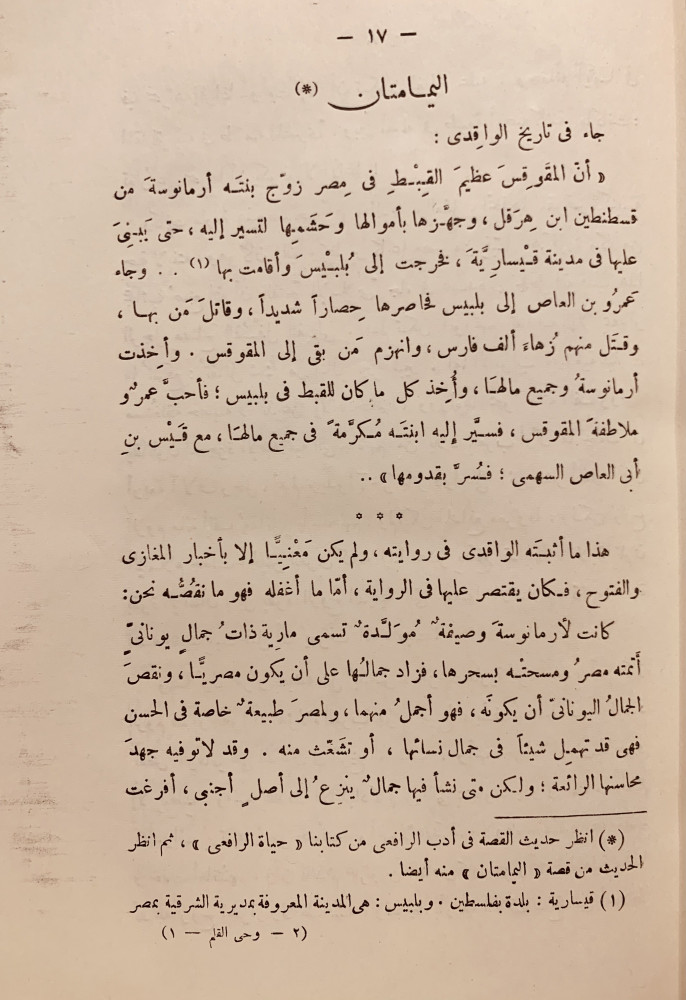 — ١٧ —
اليمامتان . (*)
جاء فى تاريخ الواقدى :
« أنّ المقَوقِسَ عظيمَ القِبْطِ فى مِصر زوّج بنتَه أرمانوسةَ من
قسطنطين ابن هِرَقل ، وجهَّزها بأموالها وحَشَمِها لتسير إليه ، حتى يَبنِىَ
عليها فى مدينة قَيْسارِيَّةَ ، فخرجت إلى بُلبَيْسَ وأقامت بها (١) . . وجاء
عَمرُو بن العاص إلى بلبيس فحاصرها حِصاراً شديداً ، وقاتلَ مَن بها ،
وقتَل منهم زُهاءَ ألف فارس ، وانهزم مَن بقى إلى المقوقس . وأُخِذت
أرمانوسةُ وجميع مالهَا ، وأُخِذ كل ما كان للقبط فى بلبيس ؛ فأحبَّ عمرٌو
ملاطفةَ المقوقس ، فسيَّر إليه ابنتَه مُكرَّمةً فى جميع مالهَا ، مع قَيْس بنِ
أبى العاص السهمى ؛ فسُرَّ بقدومها » ..
* * *
هذا ما أثبتَه الواقدى فى روايته ، ولم يكن مَعْنِيًّا إلا بأخبار المغازى
والفتوح ، فكان يقتصر عليها فى الرواية ، أمّا ما أغفله فهو ما نقُصُّه نحن :
كانت لأرمانوسةَ وصيفةٌ مُولَّدةٌ تسمى مارية ذاتُ جمالٍ يونانىٍّ
أتمته مصرُ ومسحتْه بسحرها ، فزاد جمالُها على أن يكون مصريًّا ، ونقصَ
الجمالُ اليونانىّ أن يكونَه ، فهو أجملُ منهما ، ولمصرَ طبيعةٌ خاصة فى الحسن
فهى قد تهمِل شيئاً فى جمال نسائها ، أو تشَعِّث منه . وقد لا توفيه جهدَ
محاسنها الرائعة ؛ ولكن متى نشأ فيها جمالٌ ينزِعُ إلى أصلٍ أجنبى ، أفرغت
(*) انظر حديث القصة فى أدب الرافعى من كتابنا « حياة الرافعى » ، ثم انظر
الحديث من قصة « اليمامتان » منه أيضا .
(١) قيسارية : بلدة بفلسطين . وبلبيس : هى المدينة المعروفة بمديرية الشرقية بمصر
(٢ — وحى القلم — ١)